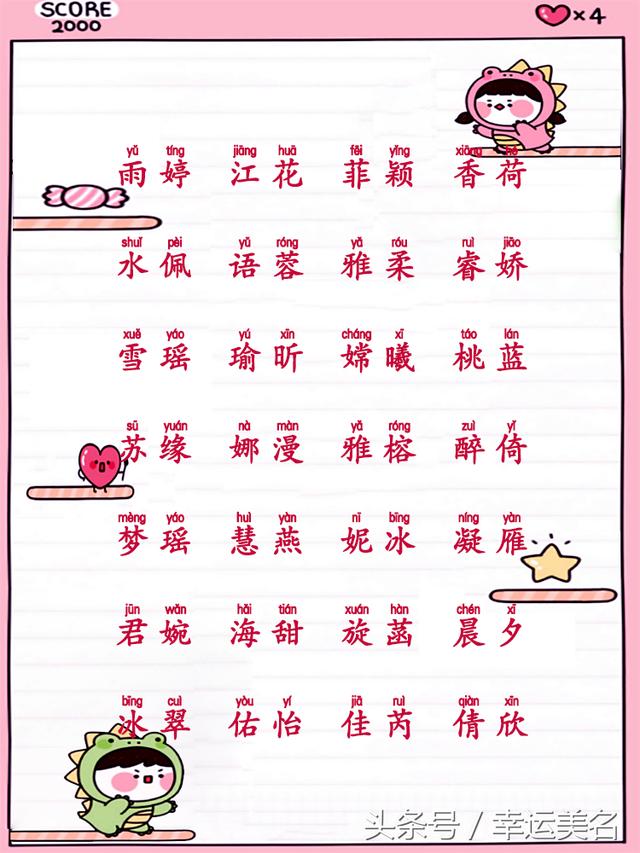 SCORE
2000
×4
yǔ tíng jiāng huā fēi yǐng xiāng hé
雨婷 江花 菲颖 香荷
shuǐ pèi yǔ róng yǎ róu ruì jiāo
水佩 语蓉 雅柔 睿娇
xuě yáo yú xīn cháng xī táo lán
雪瑶 瑜昕 嫦曦 桃蓝
sū yuán nà màn yǎ róng zuì yǐ
苏缘 娜漫 雅榕 醉倚
mèng yáo huì yàn nī bīng níng yàn
梦瑶 慧燕 妮冰 凝雁
jūn wǎn hǎi tián xuán hàn chén xī
君婉 海甜 旋菡 晨夕
bīng cuì yòu yí jiā ruì qiàn xīn
冰翠 佑怡 佳芮 倩欣
头条号 / 幸运美名